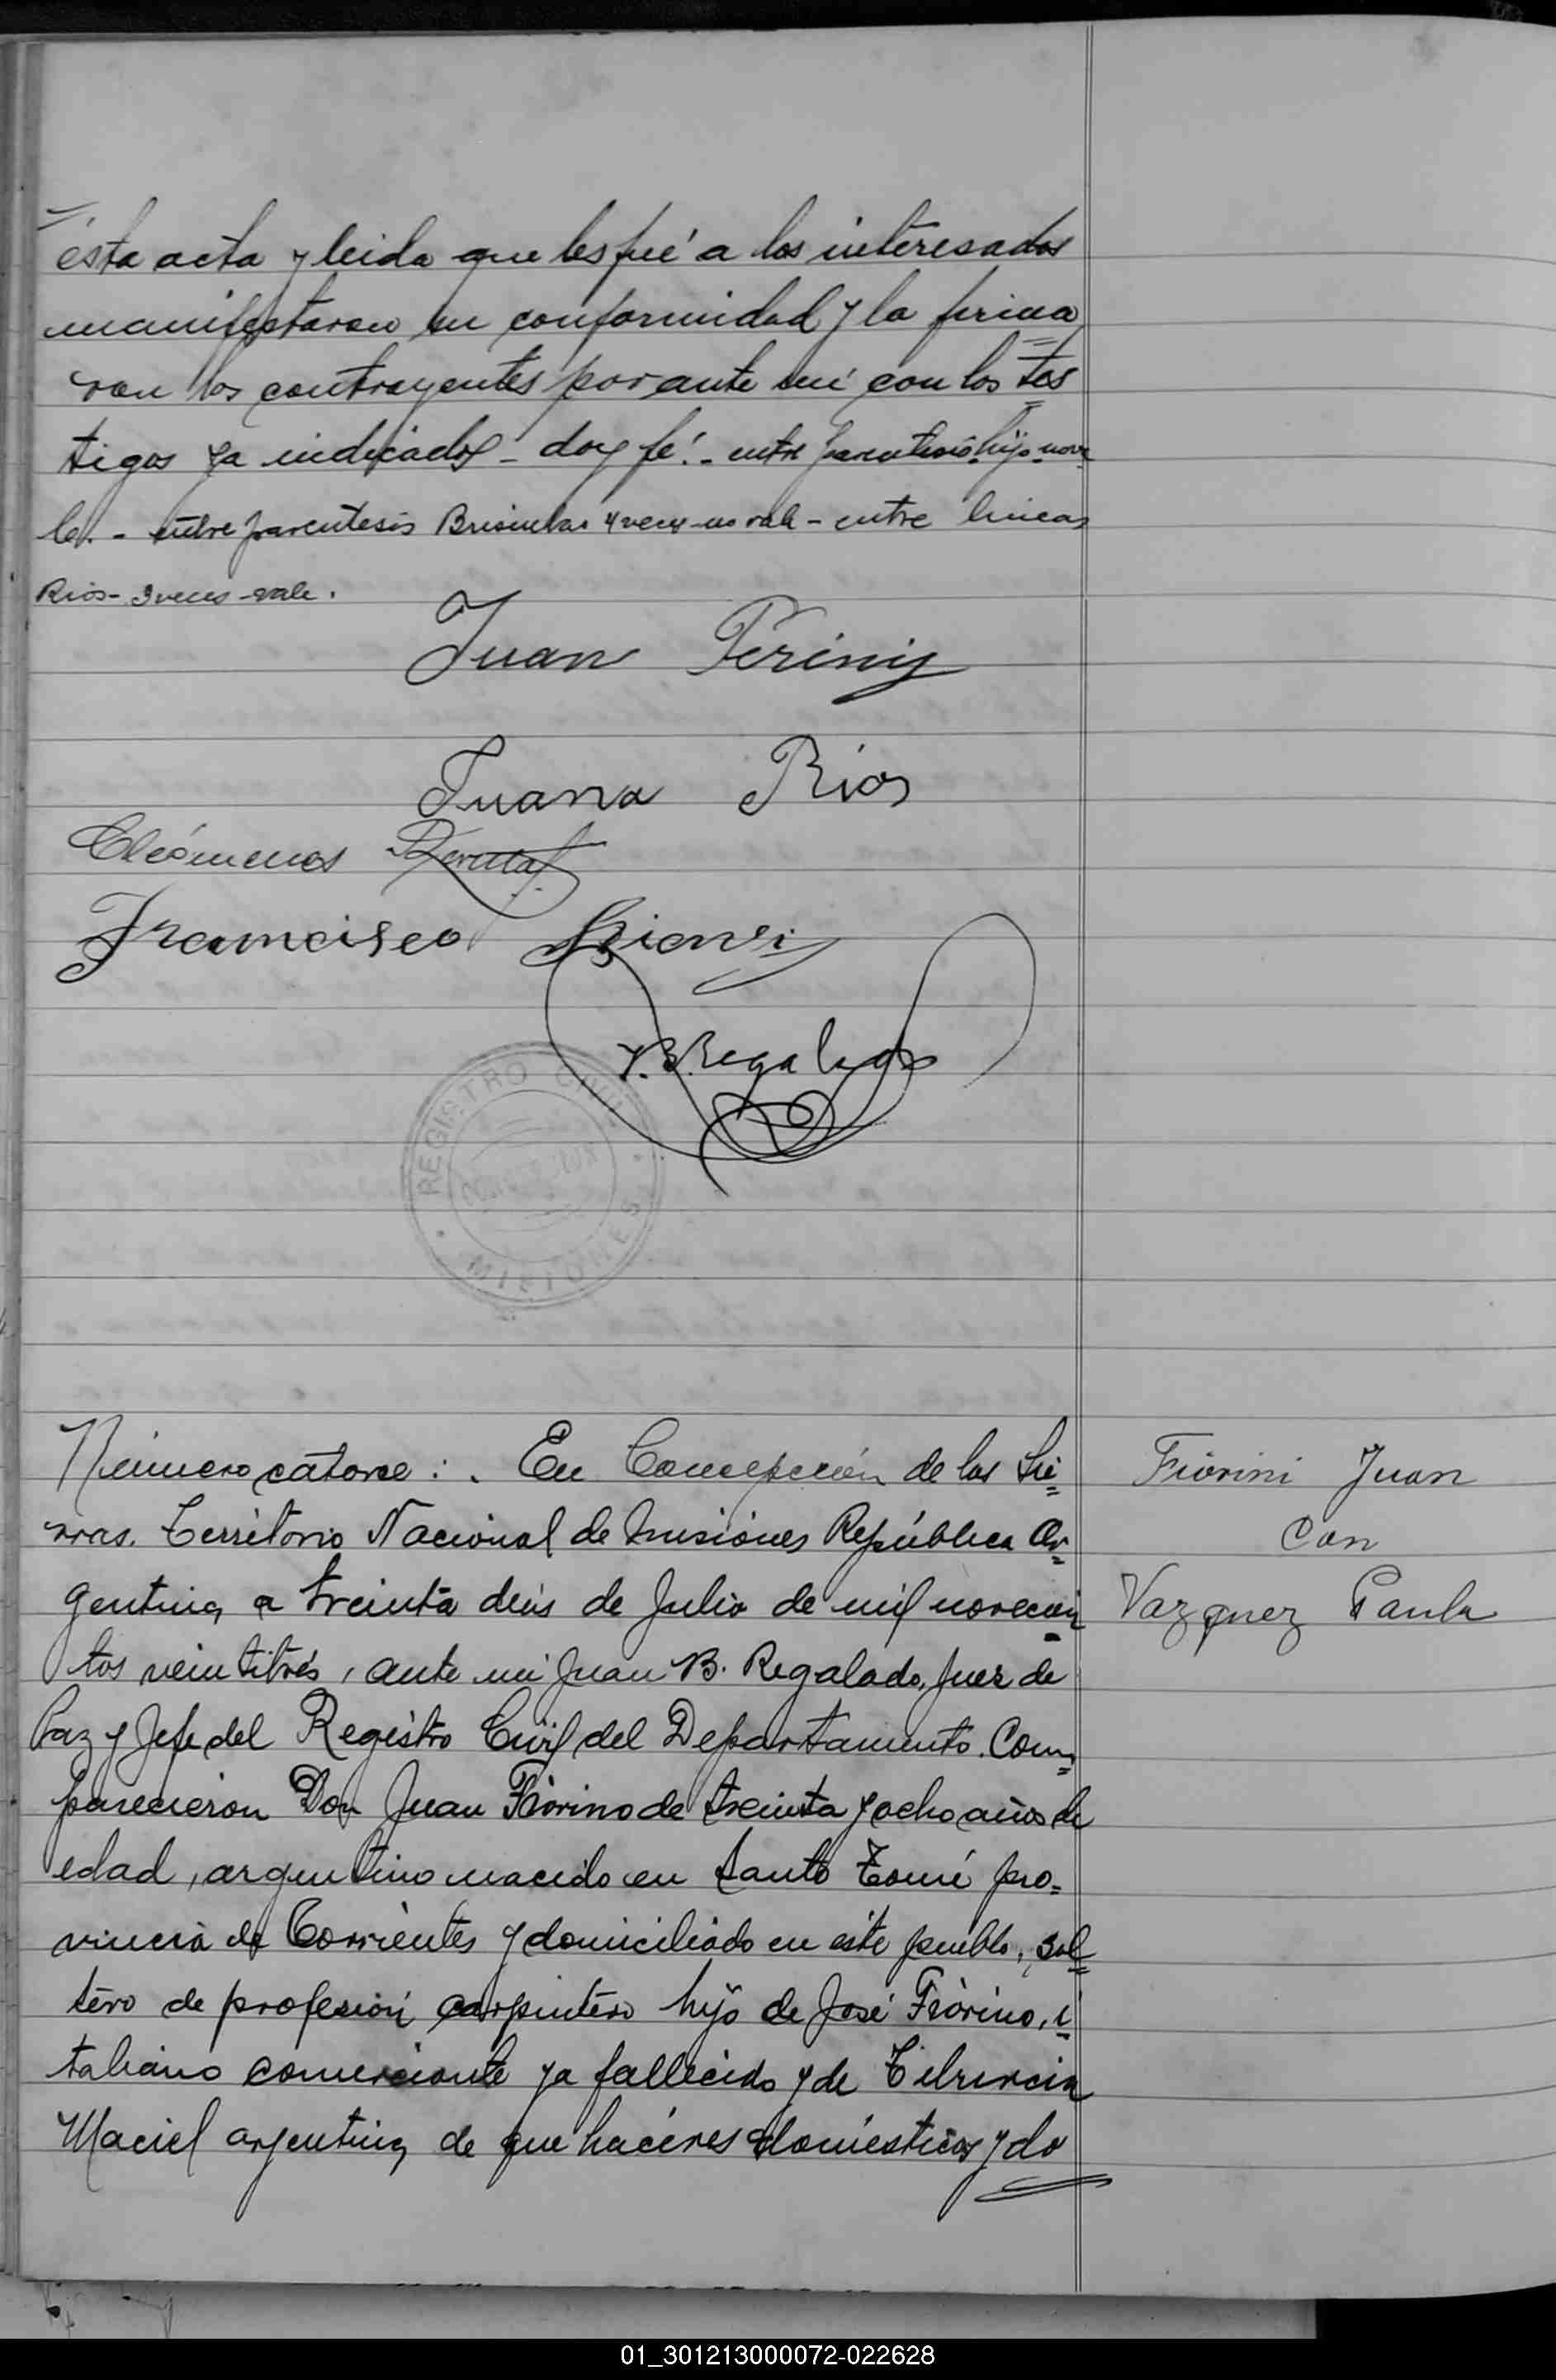 ésta acta y leida que les fué a los interesados
manifestaron su conformidad y la firma
ron los contrayentes por ante mi con los tes
tigos ya indicados - doy fé. - entre parentesis hijo no va
le. - entre parentesis 4 veces - no vale - entre lineas
Rios - 3 veces - vale.
Juan
Juana Rios
Cleómenes
Francisco
J. B. Regalado
REGISTRO CIVIL
MISIONES
Número catorce: . En Concepción de las Sie
rras. Território Nacional de Misiónes República Ar
gentina, a treinta dias de Julio de mil novecien
tos veintitrés, ante mi Juan B. Regalado, Juez de
Paz y Jefe del Registro Civil del Departamento. Com
parecieron Don Juan Fiòrino de treinta y ocho años de
edad, argentino nacido en Santo Tomé pro=
vincia de Corrientes y domiciliado en éste pueblo, sol
tero de profesión carpintero hijo de José Fiòrino, i
taliano comerciante ya fallecido y de
Maciel argentina, de que hacéres domésticos y do
Fiorini Juan
Con
Vazquez Paula
01_301213000072-022628